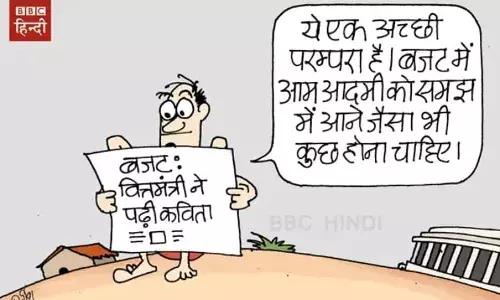 BBC
हिन्दी
ये एक अच्छी
परम्परा है। बजट में
आम आदमी को समझ
में आने जैसा भी
कुछ होना चाहिए।
बजट:
वित्तमंत्री ने
पढ़ी कविता
BBC HINDI